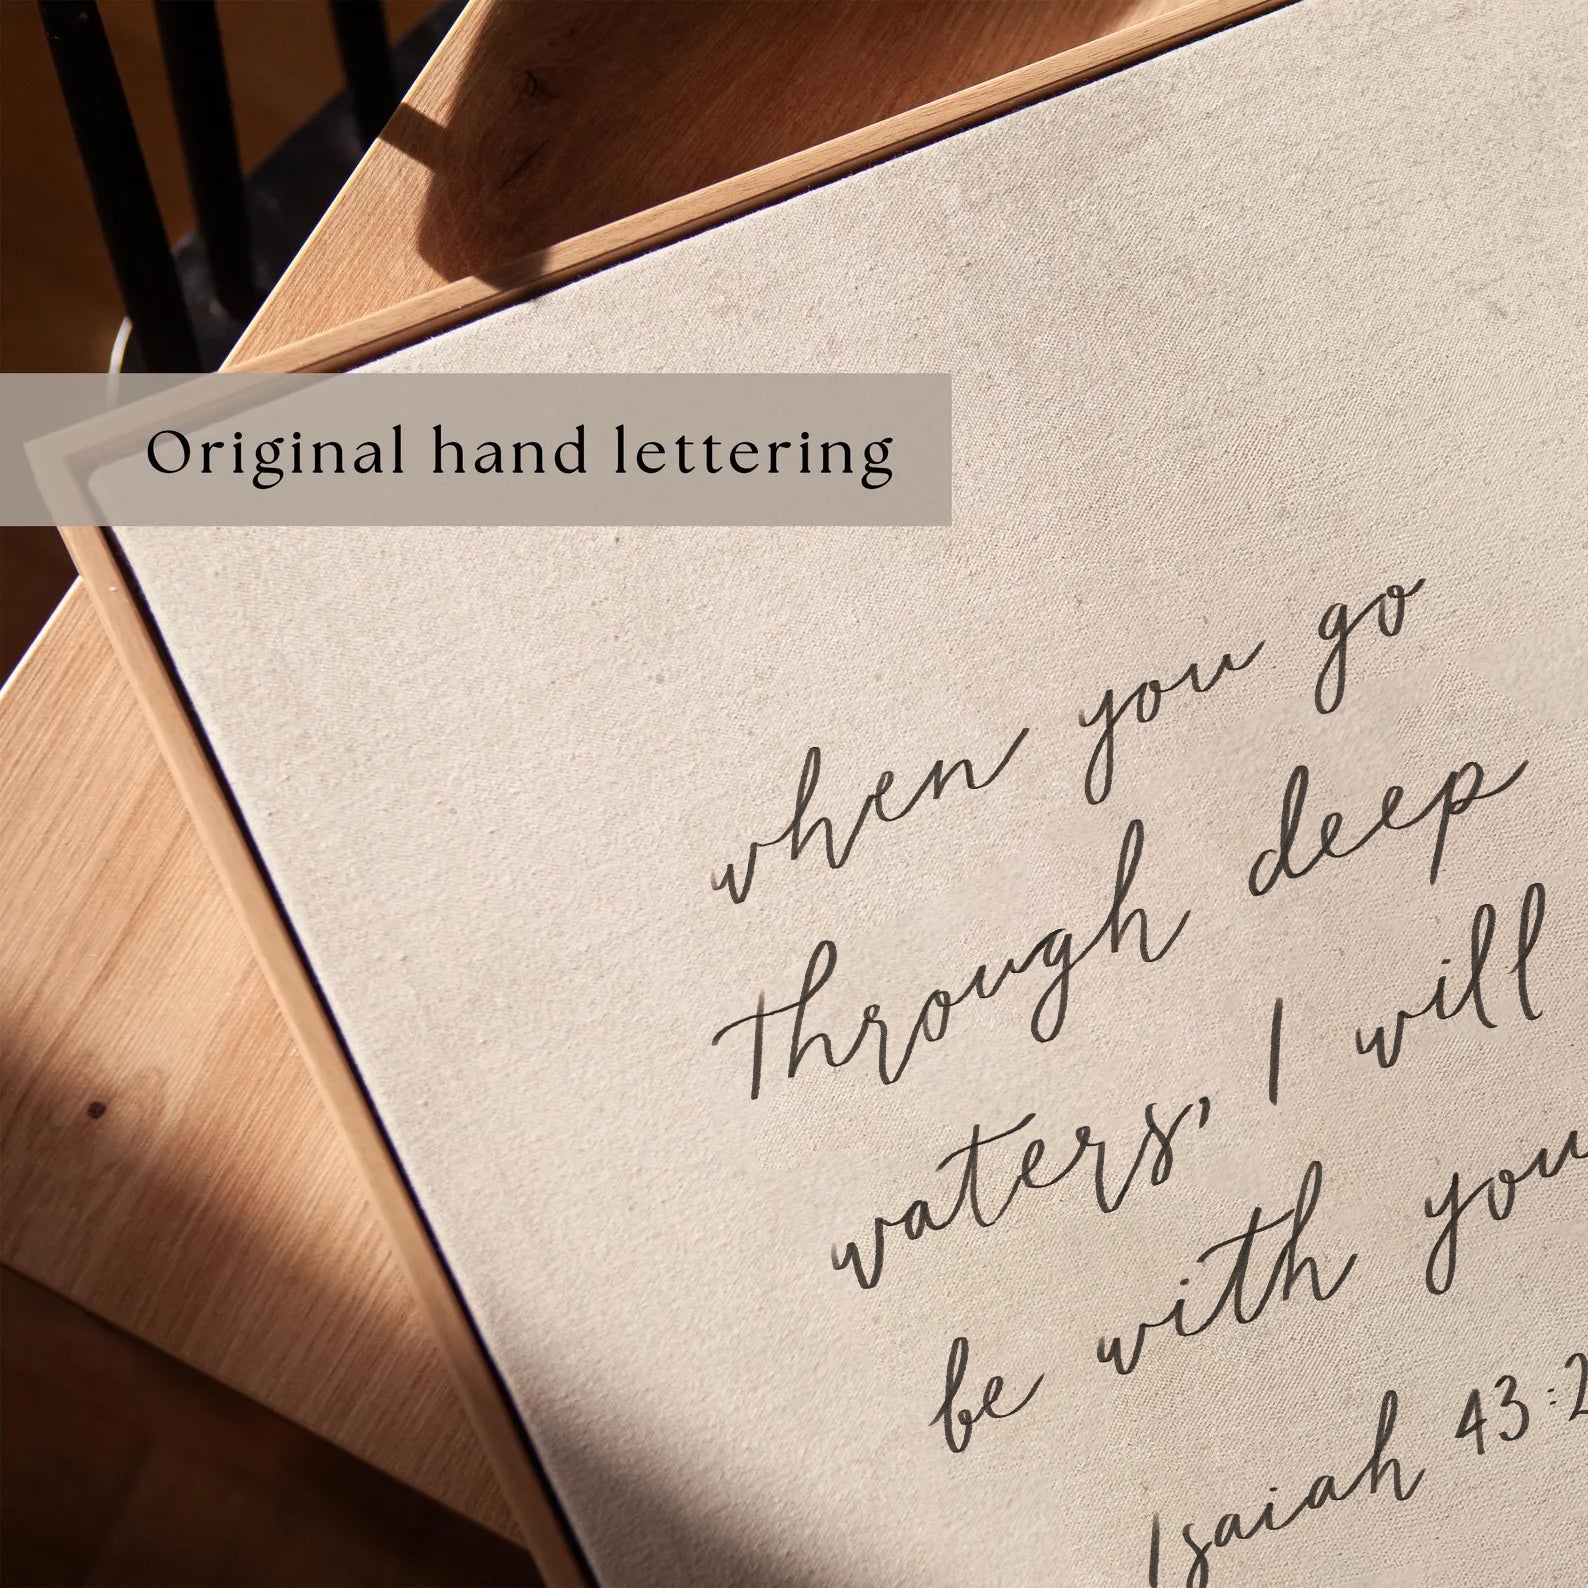 Original hand lettering
when you go
through deep
waters, I will
be with you
Isaiah 43:2